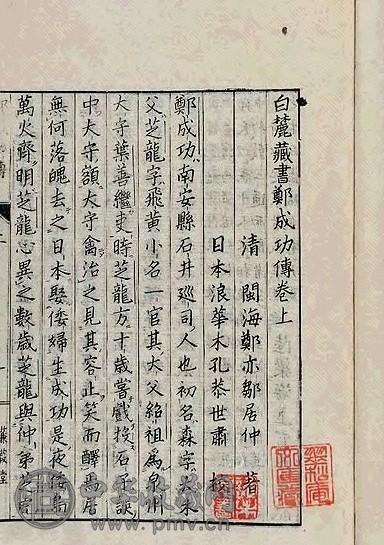 白麓藏書鄭成功傳卷上
清 閩海鄭亦鄒居仲 著
日本浪華木孔恭世肅 校
鄭成功南安縣石井巡司人也初名森字大木
父芝龍字飛黃小名一官其大父紹祖為泉州
大守葉善繼吏時芝龍方十歲嘗戲投石子誤
中大守額大守禽治之見其容止笑而釋焉居
無何落魄去之日本娶倭婦生成功是夜倭島
萬火齊明芝龍心異之數歲芝龍與仲弟芝
蒹葭堂
www.pmv.cn